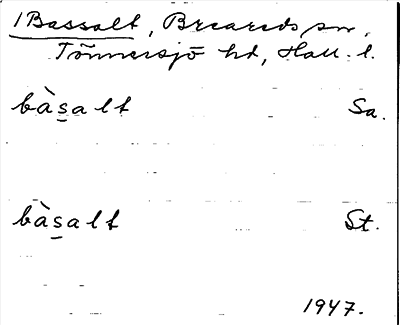 1 Bassalt, Breareds sn,
Tönnersjö hd, Hall. l.
bàsalt Sa.
bàsalt St.
1947.